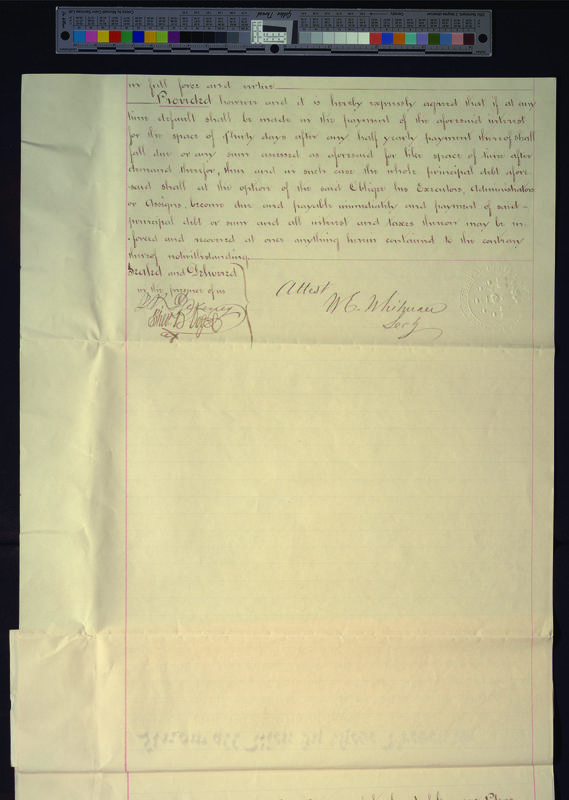 in full force and virtue
Provided however and it is hereby expressly agreed that if at any
time default shall be made in the payment of the aforesaid interest
for the space of thirty days after any half yearly payment thereof shall
fall due or any sum assessed as aforesaid for like space of time after
demand therefor, then and in such case the whole principal debt afore-
said shall at the option of the said Obligee his Executors, Administrators
or Assigns, become due and payable immediately and payment of said-
principal debt or sum and all interest and taxes thereon may be in-
-forced and recovered at once anything herein contained to the contrary
thereof notwithstanding.
Sealed and Delivered
in the presence of us
Attest
W E. Whitman
Secy